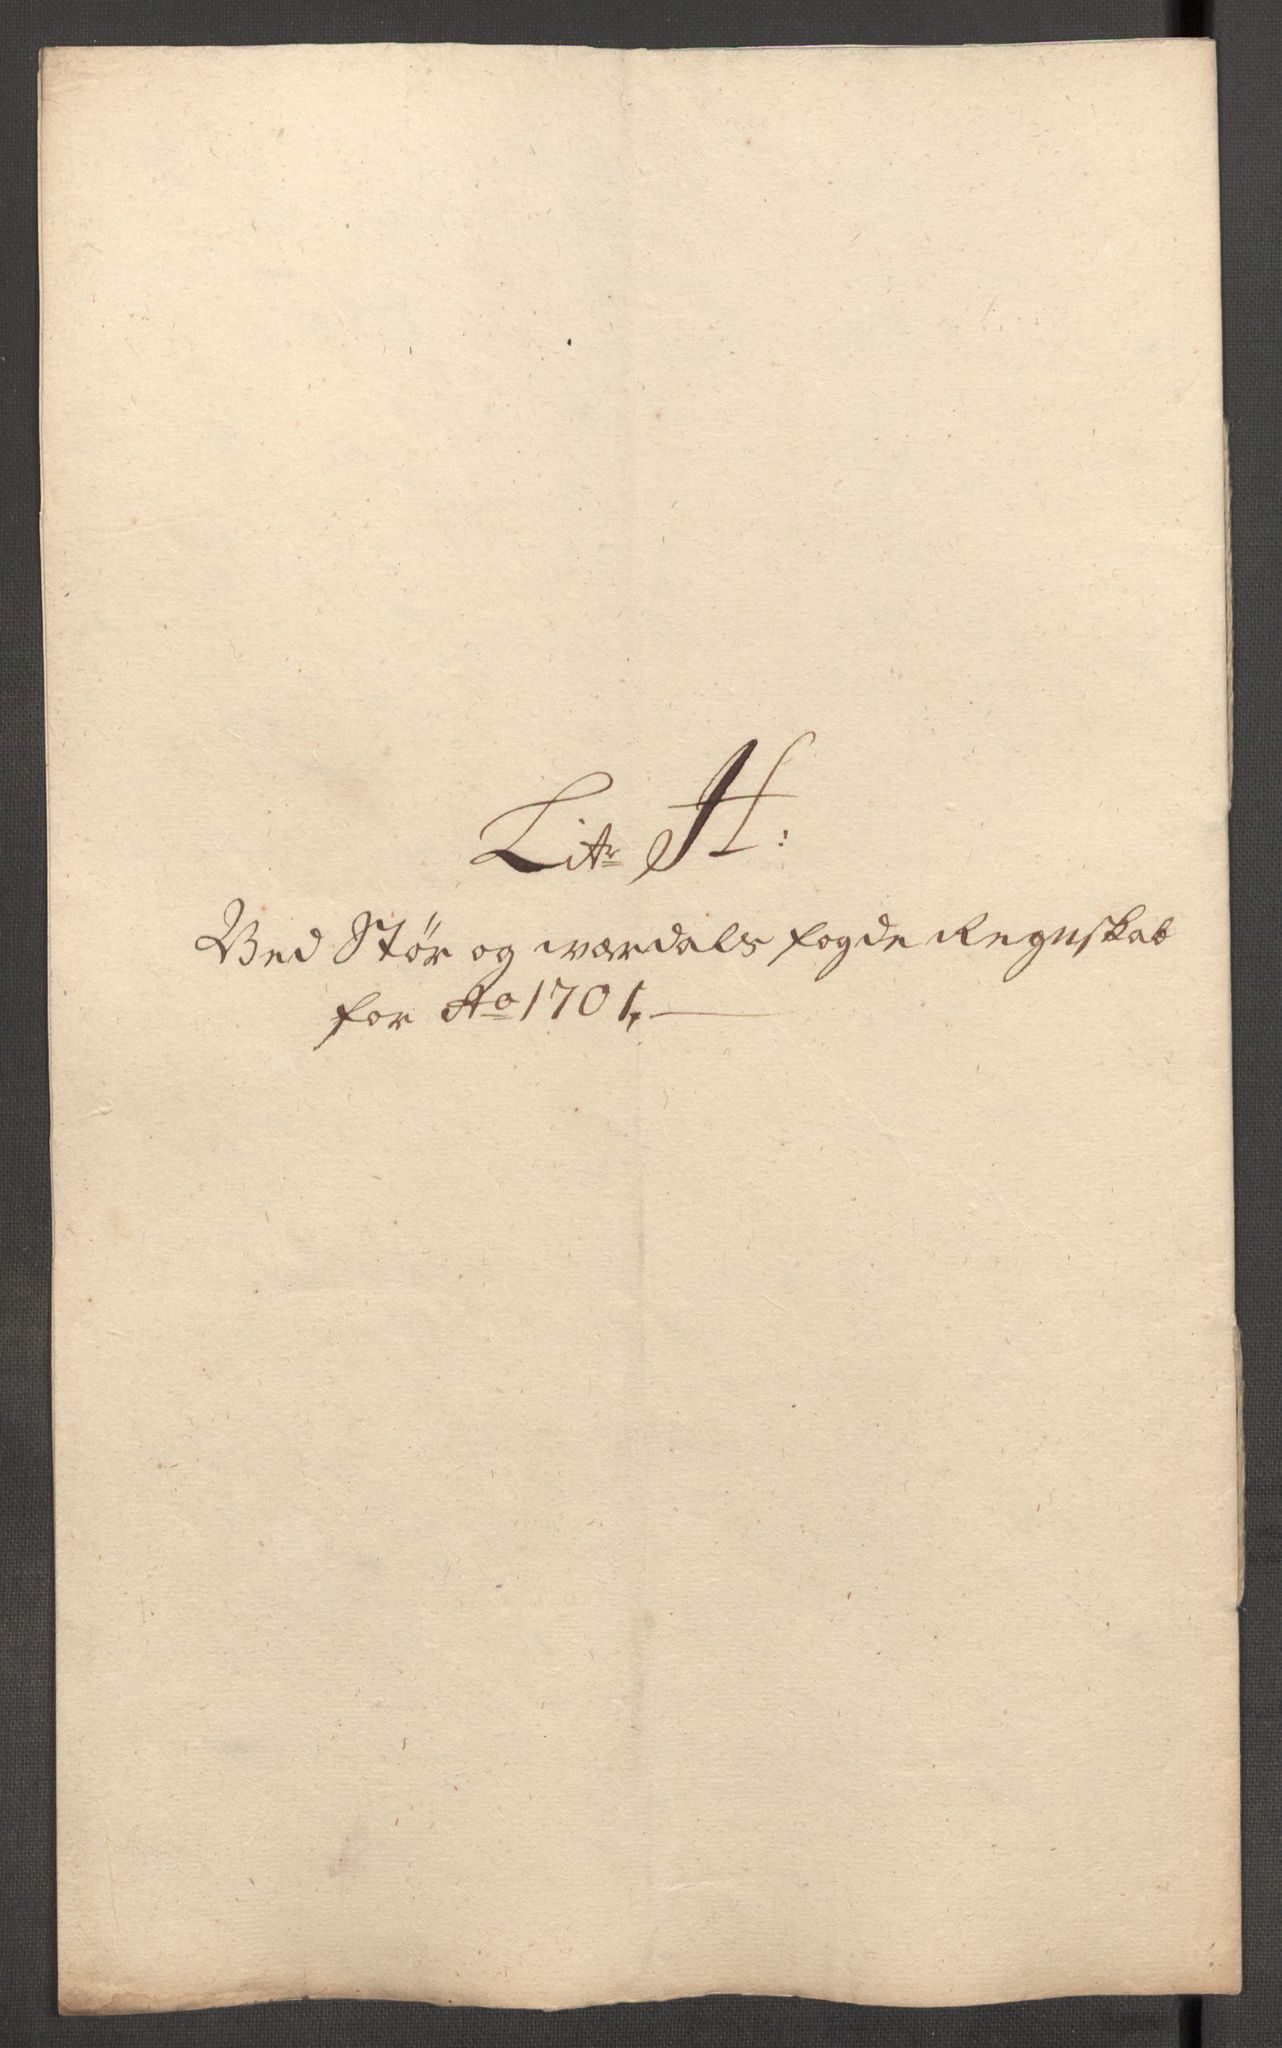 Litr H:
Ved Stør og wærdals fogde Regnskab
for Ao 1701,